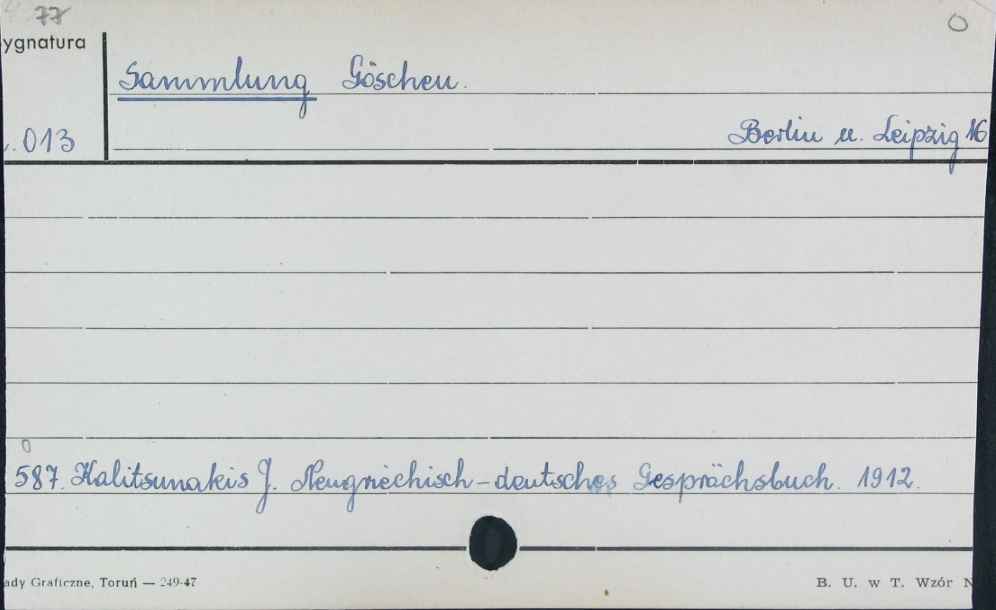 77
ygnatura
Sammlung Göschen.
013
Berlin u. Leipzig 16
587. Kalitsunakis J. Neugriechisch-deutsches Gesprächsbuch. 1912.
ady Graficzne, Toruń — 249-47
B. U. w T. Wzór N